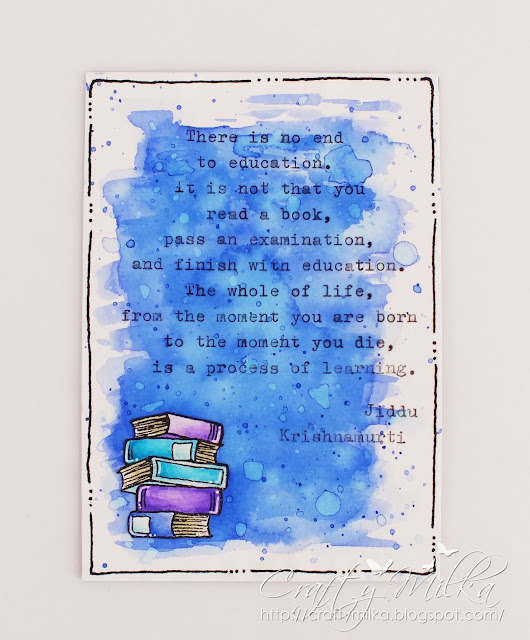 There is no end
to education.
It is not that you
read a book,
pass an examination,
and finish with education.
The whole of life,
from the moment you are born
to the moment you die,
is a process of learning.
Jiddu
Krishnamurti
Crafty Milka
http://craftymilka.blogspot.com/